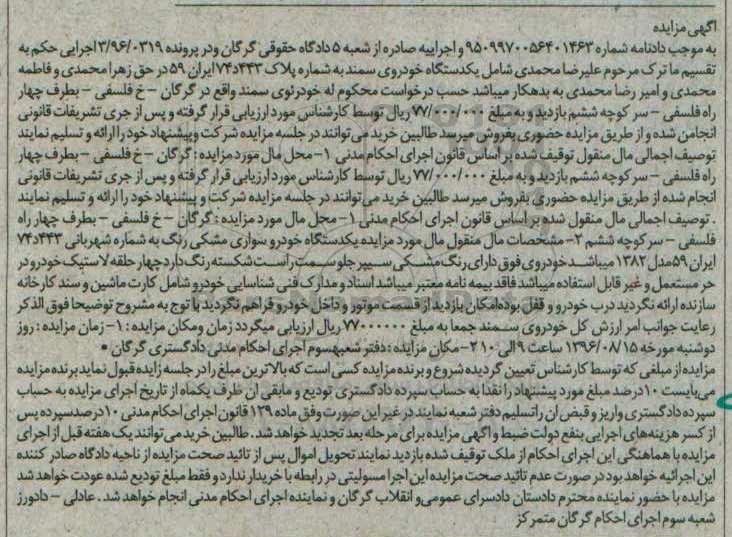 آگهی مزایده
به موجب دادنامه شماره ۹۵۰۹۹۷۰۰۵۶۴۰۱۴۶۳ و اجراییه صادره از شعبه ۵ دادگاه حقوقی گرگان ودر پرونده ۳/۹۶/۰۳۱۹ اجرایی حکم به
تقسیم ما ترک مرحوم علیرضا محمدی شامل یکدستگاه خودروی سمند به شماره پلاک ۴۴۳د۷۴ ایران ۵۹ در حق زهرا محمدی و فاطمه
محمدی و امیر رضا محمدی به بدهکار میباشد حسب درخواست محکوم له خودرئوی سمند واقع در گرگان – خ فلسفی – بطرف چهار
راه فلسفی – سر کوچه ششم بازدید و به مبلغ ۷۷/۰۰۰/۰۰۰ ریال توسط کارشناس مورد ارزیابی قرار گرفته و پس از جری تشریفات قانونی
انجامن شده و از طریق مزایده حضوری بفروش میرسد طالبین خرید می توانند در جلسه مزایده شرکت و پیشنهاد خود را ارائه و تسلیم نمایند
توصیف اجمالی مال منقول توقیف شده بر اساس قانون اجرای احکام مدنی ۱- محل مال مورد مزایده : گرگان – خ فلسفی – بطرف چهار
راه فلسفی – سر کوچه ششم بازدید و به مبلغ ۷۷/۰۰۰/۰۰۰ ریال توسط کارشناس مورد ارزیابی قرار گرفته و پس از جری تشریفات قانونی
انجام شده از طریق مزایده حضوری بفروش میرسد طالبین خرید می توانند در جلسه مزایده شرکت و پیشنهاد خود را ارائه و تسلیم نمایند
. توصیف اجمالی مال منقول شده بر اساس قانون اجرای احکام مدنی ۱- محل مال مورد مزایده : گرگان – خ فلسفی – بطرف چهار راه
فلسفی – سر کوچه ششم ۲- مشخصات مال منقول مال مورد مزایده یکدستگاه خودرو سواری مشکی رنگ به شماره شهربانی ۴۴۳د۷۴
ایران ۵۹ مدل ۱۳۸۲ میباشد خودروی فوق دارای رنگ مشکی سپر جلو سمت راست شکسته رنگ دارد چهار حلقه لاستیک خودرو در
حر مستعمل و غیر قابل استفاده میباشد فاقد بیمه نامه معتبر میباشد اسناد و مدارک فنی شناسایی خودرو شامل کارت ماشین و سند کارخانه
سازنده ارائه نگردید درب خودرو و قفل بوده امکان بازدید از قسمت موتور و داخل خودرو فراهم نگردید با توج به مشروح توضیحا فوق الذکر
رعایت جوانب امر ارزش کل خودروی سمند جمعا به مبلغ ۷۷۰۰۰۰۰۰ ریال ارزیابی میگردد زمان ومکان مزایده : ۱- زمان مزایده : روز
دوشنبه مورخه ۱۳۹۶/۰۸/۱۵ ساعت ۹ الی ۱۰ ۲- مکان مزایده : دفتر شعبهسوم اجرای احکام مدنی دادگستری گرگان •
مزایده از مبلغی که توسط کارشناس تعیین گردیده شروع و برنده مزایده کسی است که بالاترین مبلغ را در جلسه زایده قبول نماید برنده مزایده
می بایست ۱۰ درصد مبلغ مورد پیشنهاد را نقدا به حساب سپرده دادگستری تودیع و مابقی ان ظرف یکماه از تاریخ اجرای مزایده به حساب
سپرده دادگستری واریز و قبض ان راتسلیم دفتر شعبه نمایند در غیر این صورت وفق ماده ۱۲۹ قانون اجرای احکام مدنی ۱۰ درصدسپرده پس
از کسر هزینه های اجرایی بنفع دولت ضبط و اگهی مزایده برای مرحله بعد تجدید خواهد شد . طالبین خرید می توانند یک هفته قبل از اجرای
مزایده با هماهنگی این اجرای احکام از ملک توقیف شده بازدید نمایند تحویل اموال پس از تائید صحت مزایده از ناحیه دادگاه صادر کننده
این اجرائیه خواهد بود در صورت عدم تائید صحت مزایده این اجرا مسولیتی در رابطه با خریدار ندارد و فقط مبلغ تودیع شده عودت خواهد شد
مزایده با حضور نماینده محترم دادستان دادسرای عمومی و انقلاب گرگان و نماینده اجرای احکام مدنی انجام خواهد شد . عادلی – دادورز
شعبه سوم اجرای احکام گرگان متمرکز